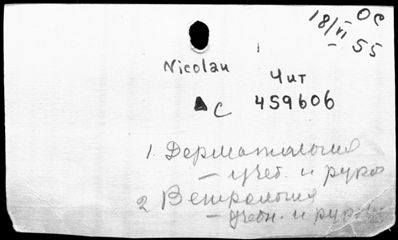 ОС
18/VI 55
Nicolau
Чит
▲ С 459606
1. Дерматология
– учеб. и руков
2 Венерология
– учебн. и руков